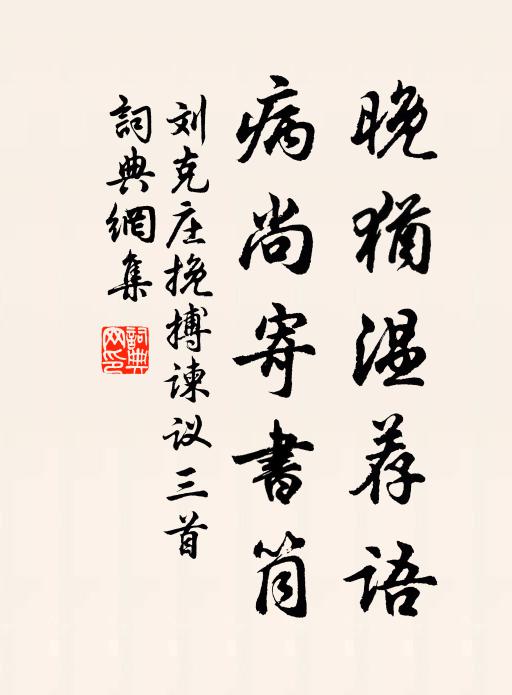 晚猶温荐語
病尚寄書筒
刘克庄挽搏谏议三首
詞典網集
詞典网印